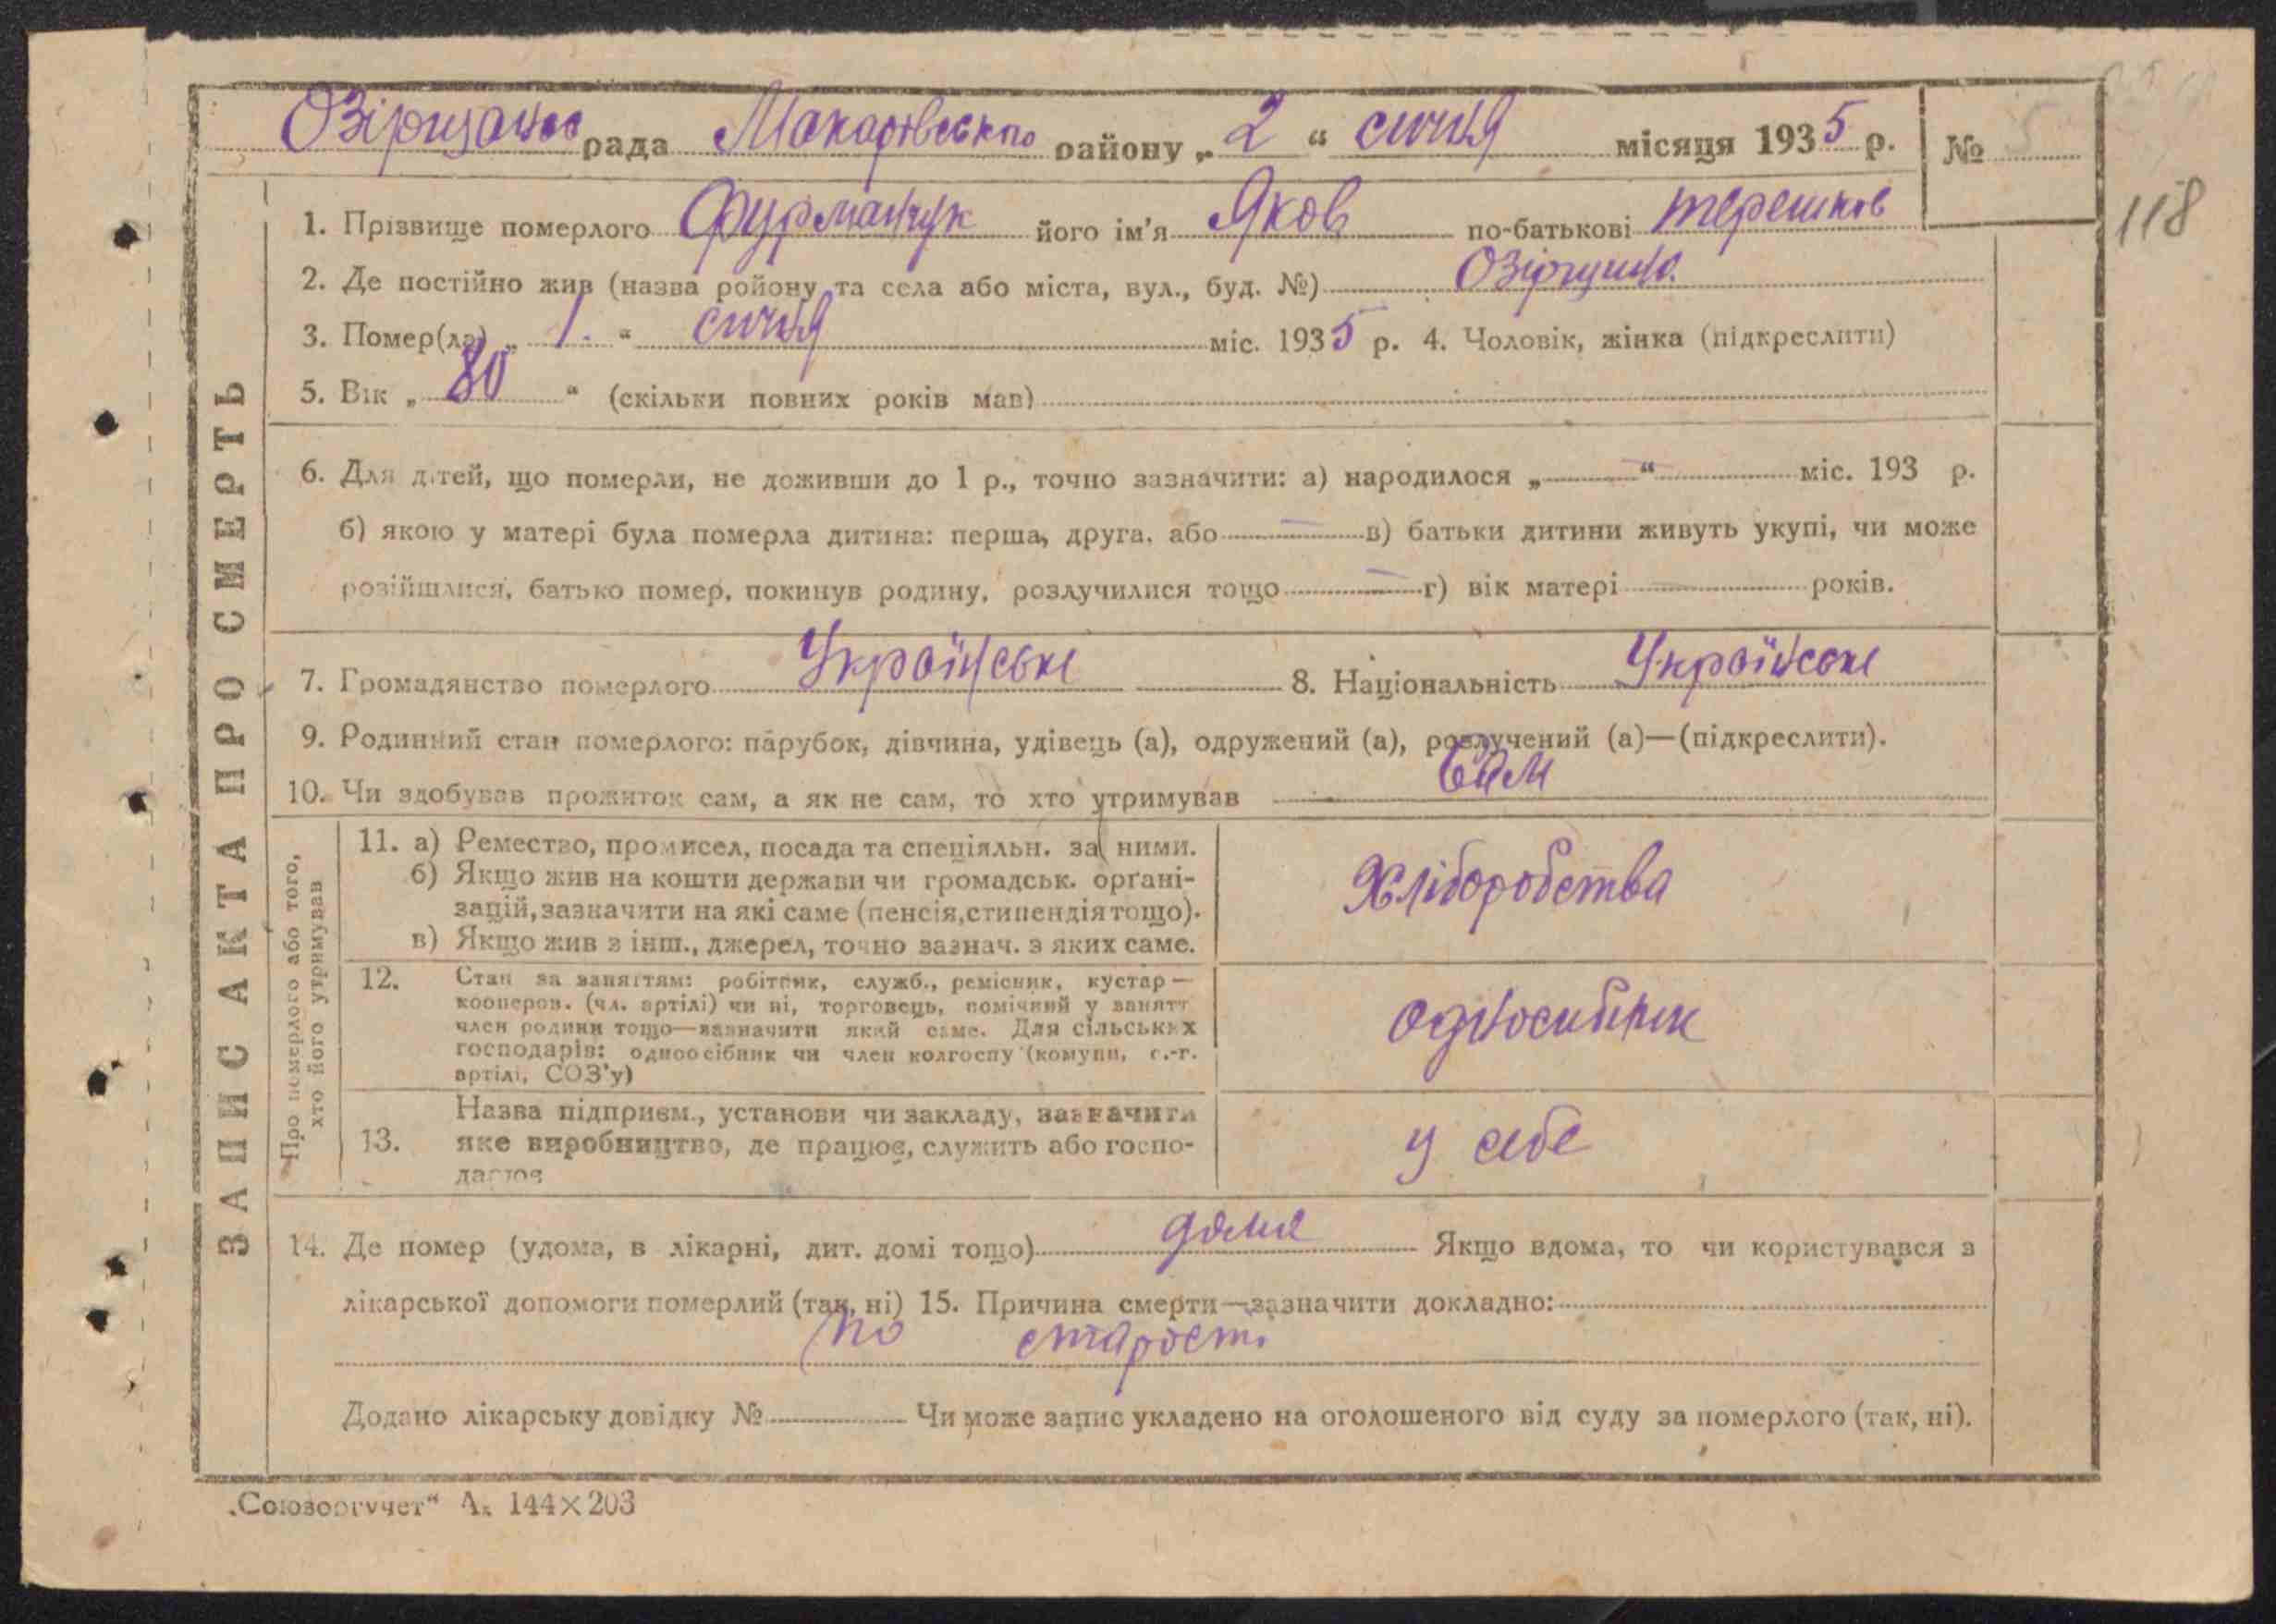 Озірщанс рада Макарівського району „ 2 “ січня місяця 1935 р. № 5
118
1. Прізвище померлого Фурманчук його ім'я Яков по-батькові терешков
2. Де постійно жив (назва ройону та села або міста, вул., буд. №) Озірщина
3. Помер(ла) „ 1. “ січня міс. 1935 р. 4. Чоловік, жінка (підкреслити)
5. Вік „ 80 “ (скільки повних років мав)
6. Для дітей, що померли, не доживши до 1 р., точно зазначити: а) народилося „ — “ міс. 193 р.
б) якою у матері була померла дитина: перша, друга, або — в) батьки дитини живуть укупі, чи може
розійшлися, батько помер, покинув родину, розлучилися тощо — г) вік матері — років.
7. Громадянство померлого Українське 8. Національність Українське
9. Родинний стан померлого: парубок, дівчина, удівець (а), одружений (а), розлучений (а)—(підкреслити).
10. Чи здобував прожиток сам, а як не сам, то хто утримував Сам
ЗАПИС АКТА ПРО СМЕРТЬ
Про померлого або того,
хто його утримував
11. а) Ремество, промисел, посада та спеціяльн. за ними.
б) Якщо жив на кошти держави чи громадськ. органі-
зацій, зазначити на які саме (пенсія, стипендія тощо).
в) Якщо жив з інш., джерел, точно зазнач. з яких саме.
Хліборобства
12. Стан за заняттям: робітник, служб., ремісник, кустар —
кооперов. (чл. артілі) чи ні, торговець, помічний у занятт
член родини тощо—зазначити який саме. Для сільських
господарів: одноосібник чи член колгоспу (комуни, с.-г.
артілі, СОЗ'у)
односибник
13. Назва підприєм., установи чи закладу, зазначити
яке виробництво, де працює, служить або госпо-
дарює
у себе
14. Де помер (удома, в лікарні, дит. домі тощо) доме Якщо вдома, то чи користувався з
лікарської допомоги померлий (так, ні) 15. Причина смерти—зазначити докладно:
по старости
Додано лікарську довідку № Чи може запис укладено на оголошеного від суду за померлого (так, ні).
„Союзоргучет“ А₅ 144×203